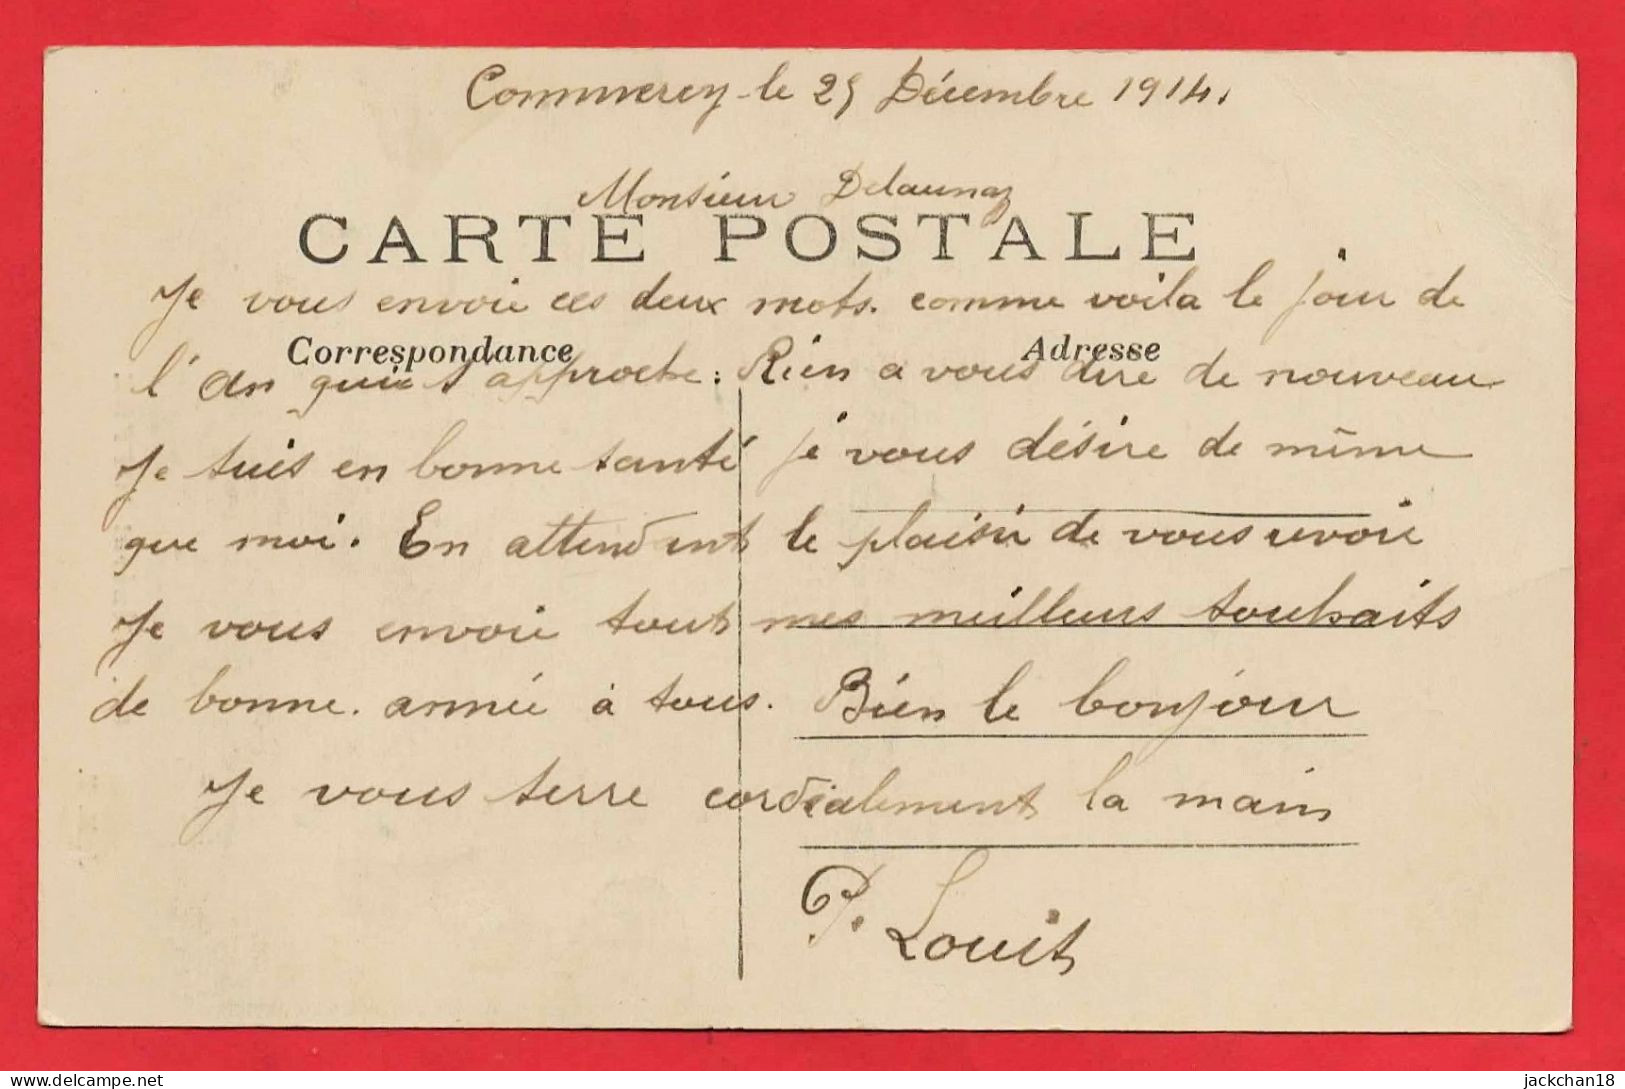 Commercy le 25 Décembre 1914.
Monsieur Delaunay
CARTE POSTALE
Je vous envoie ces deux mots. comme voila le jour de
Correspondance Adresse
l'an qui s'approche: Rien a vous dire de nouveau
Je suis en bonne santé je vous désire de même
que moi. En attendant le plaisir de vous revoir
Je vous envoie tout mes meilleurs souhaits
de bonne. année à tous. Bien le bonjour
Je vous serre cordialement la main
P. Louis
jackchan18